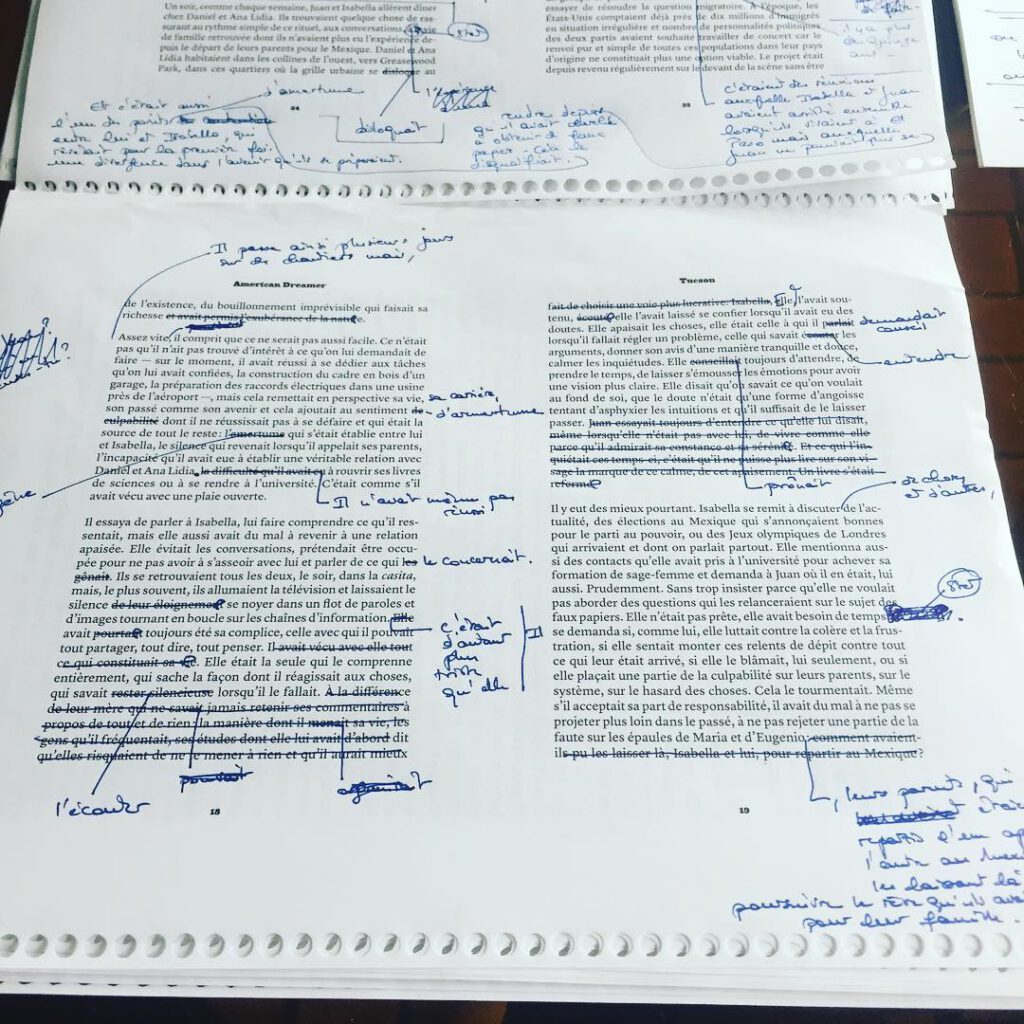 Un soir, comme chaque semaine, Juan et Isabella allèrent dîner
chez Daniel et Ana Lidia. Ils trouvaient quelque chose de ras-
surant au rythme simple de ce rituel, aux conversations
de famille retrouvée dont ils n'avaient plus eu l'expérience de-
puis le départ de leurs parents pour le Mexique. Daniel et Ana
Lidia habitaient dans les collines de l'ouest, vers Greasewood
Park, dans ces quartiers où la grille urbaine se disloque au
d'amertume
Et c'était aussi
l'un des points
entre lui et Isabella, qui
révélait pour la première fois
une divergence dans l'avenir qu'ils se préparaient.
disloquait
essayer de résoudre la question migratoire. À l'époque, les
États-Unis comptaient déjà près de dix millions d'immigrés
en situation irrégulière et nombre de personnalités politiques
des deux partis avaient souhaité travailler de concert car le
renvoi pur et simple de toutes ces populations dans leur pays
d'origine ne constituait plus une option viable. Le projet était
depuis revenu régulièrement sur le devant de la scène sans être
qu'il avait cherché
à obtenir de faux
papiers. Cela le
disqualifiait.
c'étaient des réunions
auxquelles Isabella et Juan
avaient assisté
lorsqu'ils vivaient à El
Paso mais auxquelles
Juan ne pouvait plus se
Il passe ainsi plusieurs jours
sur des chantiers mais,
American Dreamer
de l'existence, du bouillonnement imprévisible qui faisait sa
richesse et avait permis l'exubérance de la nature.
Assez vite, il comprit que ce ne serait pas aussi facile. Ce n'était
pas qu'il n'ait pas trouvé d'intérêt à ce qu'on lui demandait de
faire — sur le moment, il avait réussi à se dédier aux tâches
qu'on lui avait confiées, la construction du cadre en bois d'un
garage, la préparation des raccords électriques dans une usine
près de l'aéroport —, mais cela remettait en perspective sa vie, sa carrière,
son passé comme son avenir et cela ajoutait au sentiment de d'amertume
culpabilité dont il ne réussissait pas à se défaire et qui était la
source de tout le reste : l'amertume qui s'était établie entre lui
et Isabella, le silence qui revenait lorsqu'il appelait ses parents,
l'incapacité qu'il avait eue à établir une véritable relation avec
Daniel et Ana Lidia, la difficulté qu'il avait eu à rouvrir ses livres
de sciences ou à se rendre à l'université. C'était comme s'il
avait vécu avec une plaie ouverte.
Il n'avait même pas
réussi
Il essaya de parler à Isabella, lui faire comprendre ce qu'il res-
sentait, mais elle aussi avait du mal à revenir à une relation
apaisée. Elle évitait les conversations, prétendait être occu-
pée pour ne pas avoir à s'asseoir avec lui et parler de ce qui les le concernait.
gênait. Ils se retrouvaient tous les deux, le soir, dans la casita,
mais, le plus souvent, ils allumaient la télévision et laissaient le
silence de leur éloignement se noyer dans un flot de paroles et
d'images tournant en boucle sur les chaînes d'information. Elle
avait pourtant toujours été sa complice, celle avec qui il pouvait
tout partager, tout dire, tout penser. Il avait vécu avec elle tout
ce qui constituait sa vie. Elle était la seule qui le comprenne
entièrement, qui sache la façon dont il réagissait aux choses,
qui savait rester silencieuse lorsqu'il le fallait. À la différence
de leur mère qui ne savait jamais retenir ses commentaires à
propos de tout et de rien : la manière dont il menait sa vie, les
gens qu'il fréquentait, ses études dont elle lui avait d'abord dit
qu'elles risquaient de ne le mener à rien et qu'il aurait mieux
c'était
d'autant
plus
triste
qu'elle
Il
l'écouter
18
Tucson
fait de choisir une voie plus lucrative. Isabella, Elle, l'avait sou-
tenu, écouté, elle l'avait laissé se confier lorsqu'il avait eu des
doutes. Elle apaisait les choses, elle était celle à qui il parlait demandait
conseil
lorsqu'il fallait régler un problème, celle qui savait écouter les
arguments, donner son avis d'une manière tranquille et douce,
calmer les inquiétudes. Elle conseillait toujours d'attendre, de entendre
prendre le temps, de laisser s'émousser les émotions pour avoir
une vision plus claire. Elle disait qu'on savait ce qu'on voulait
au fond de soi, que le doute n'était qu'une forme d'angoisse
tentant d'asphyxier les intuitions et qu'il suffisait de le laisser
passer. Juan essayait toujours d'entendre ce qu'elle lui disait,
même lorsqu'elle n'était pas avec lui, de vivre comme elle
parce qu'il admirait sa constance et sa sérénité. Et ce qui l'in-
quiétait ces temps-ci, c'était qu'il ne puisse plus lire sur son vi-
sage la marque de ce calme, de cet apaisement. Un livre s'était
refermé
prônait
de choses
et d'autres,
Il y eut des mieux pourtant. Isabella se remit à discuter de l'ac-
tualité, des élections au Mexique qui s'annonçaient bonnes
pour le parti au pouvoir, ou des Jeux olympiques de Londres
qui arrivaient et dont on parlait partout. Elle mentionna aus-
si des contacts qu'elle avait pris à l'université pour achever sa
formation de sage-femme et demanda à Juan où il en était, lui
aussi. Prudemment. Sans trop insister parce qu'elle ne voulait
pas aborder des questions qui les relanceraient sur le sujet des
faux papiers. Elle n'était pas prête, elle avait besoin de temps
se demanda si, comme lui, elle luttait contre la colère et la frus-
tration, si elle sentait monter ces relents de dépit contre tout
ce qui leur était arrivé, si elle le blâmait, lui seulement, ou si
elle plaçait une partie de la culpabilité sur leurs parents, sur le
système, sur le hasard des choses. Cela le tourmentait. Même
s'il acceptait sa part de responsabilité, il avait du mal à ne pas se
projeter plus loin dans le passé, à ne pas rejeter une partie de la
faute sur les épaules de Maria et d'Eugenio, comment avaient-
ils pu les laisser là, Isabella et lui, pour repartir au Mexique ?
, leurs parents, qui
repartis l'un
l'autre au
les laissant là
poursuivre le rêve qu'ils
pour leur famille.
19